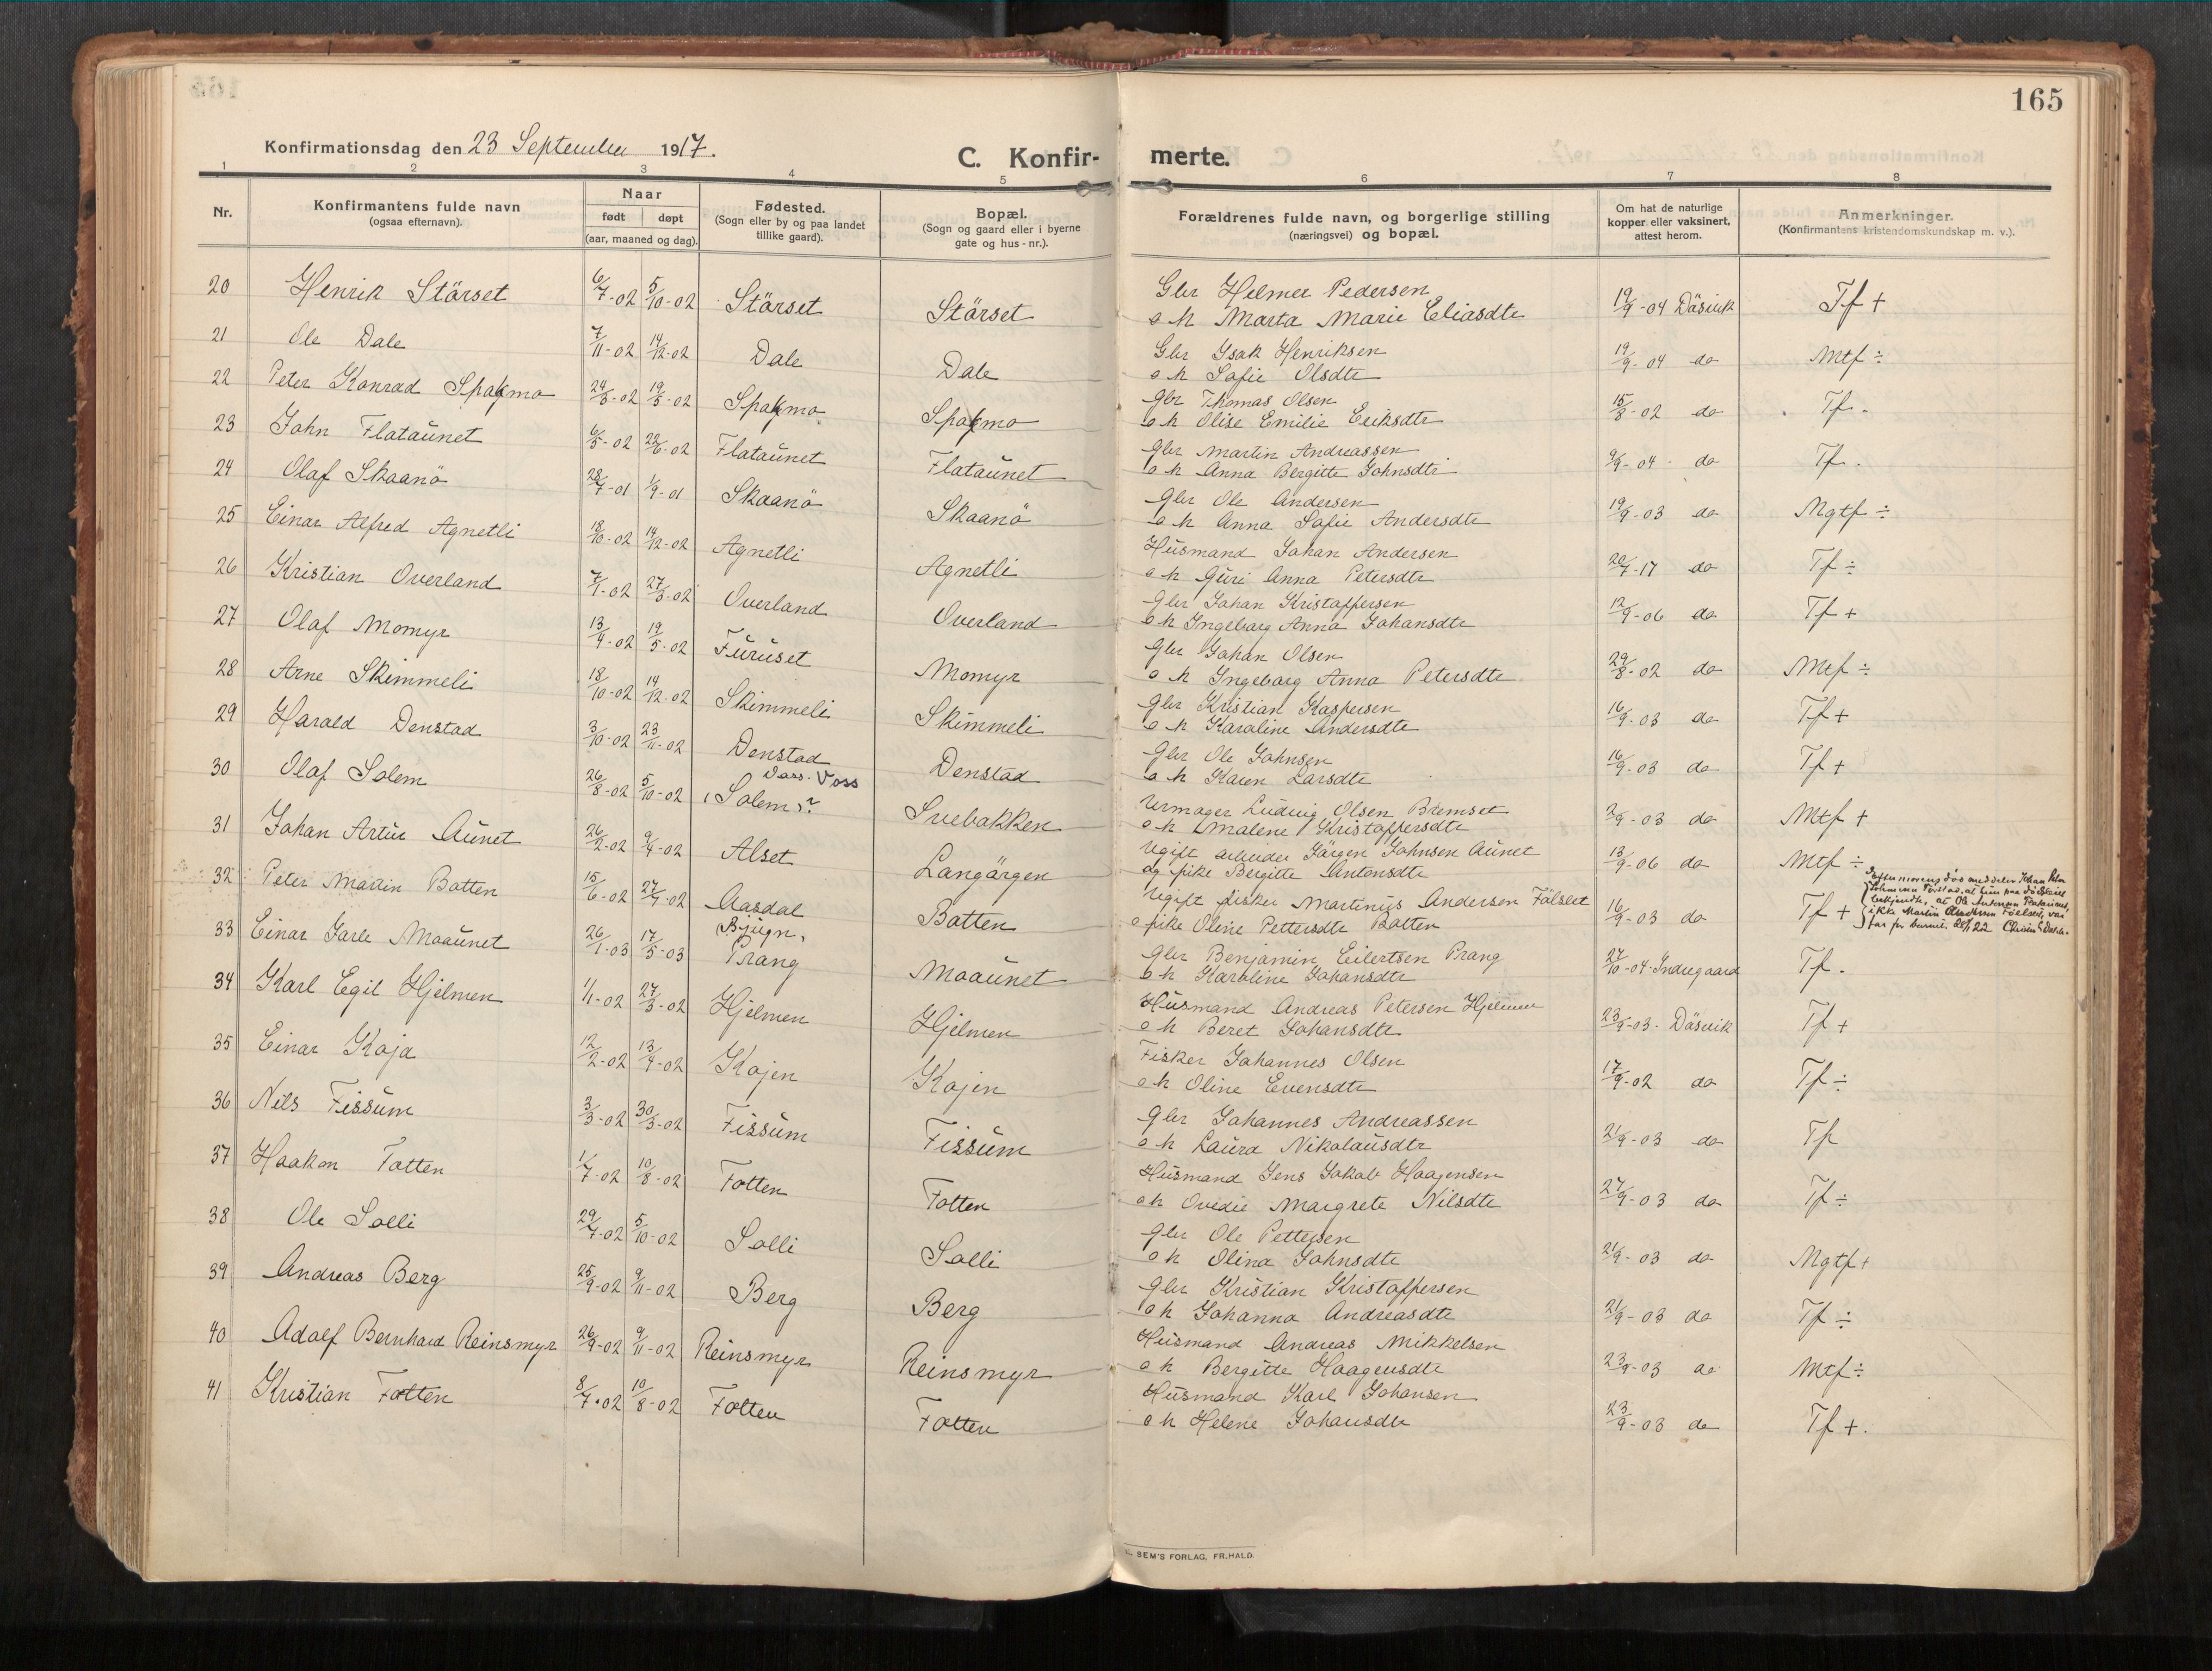 165
Konfirmationsdag den 23 September 1917.
C. Konfir- merte.
1 2 3 4 5 6 7 8
Nr.
Konfirmantens fulde navn
(ogsaa efternavn).
Naar
født døpt
(aar, maaned og dag).
Fødested.
(Sogn eller by og paa landet
tillike gaard).
Bopæl.
(Sogn og gaard eller i byerne
gate og hus-nr.).
Forældrenes fulde navn, og borgerlige stilling
(næringsvei) og bopæl.
Om hat de naturlige
kopper eller vaksinert,
attest herom.
Anmerkninger.
(Konfirmantens kristendomskundskap m. v.).
20 Henrik Störset 6/7-02 5/10-02 Störset Störset Gbr Helmer Pedersen
o h Marta Marie Eliasdtr 19/9-04 Däsvik Tf +
21 Ole Dale 7/11-02 14/12-02 Dale Dale Gbr Isak Henriksen
o h Sofie Olsdtr 19/9-04 do Mtf ÷
22 Peter Konrad Spakmo 24/3-02 19/5-02 Spakmo Spakmo Gbr Thomas Olsen
o h Olise Emilie Eriksdtr 15/8-02 do Tf.
23 John Flataunet 6/5-02 22/6-02 Flataunet Flataunet Gbr Martin Andreassen
o h Anna Bergitte Johnsdtr 9/9-04 do Tf.
24 Olaf Skaanö 28/7-01 1/9-01 Skaanö Skaanö Gbr Ole Andersen
o h Anna Sofie Andersdtr 19/9-03 do Mgtf ÷
25 Einar Alfred Agnetli 18/10-02 14/12-02 Agnetli Agnetli Husmand Johan Andersen
o h Guri Anna Petersdtr 20/7-17 do Tf ÷
26 Kristian Overland 7/1-02 27/3-02 Overland Overland Gbr Johan Kristoffersen
o h Ingeborg Anna Johansdtr 12/9-06 do Tf +
27 Olaf Momyr 13/4-02 19/5-02 Furuset Momyr Gbr Johan Olsen
o h Ingeborg Anna Petersdtr 29/8-02 do Mtf ÷
28 Arne Skimmeli 18/10-02 14/12-02 Skimmeli Skimmeli Gbr Kristian Kaspersen
o h Karoline Andersdtr 16/9-03 do Tf +
29 Harald Denstad 3/10-02 23/11-02 Denstad Denstad Gbr Ole Johnsen
o h Karen Larsdtr 16/9-03 do Tf +
30 Olaf Solem 26/8-02 5/10-02 Voss. Voss
(Solem)? Svebakken Urmager Ludvig Olsen Bremset
o h Malene Kristoffersdtr 2/9-03 do Mtf +
31 Johan Artur Aunet 26/2-02 9/4-02 Alset Langörgen Ugift arbeider Jörgen Johnsen Aunet
og pike Bergitte Antonsdtr 13/9-06 do Mtf ÷
32 Peter Martin Botten 15/6-02 27/7-02 Aasdal Botten Ugift fisker Martinus Andersen Fölslet
o pike Oline Pettersdtr Botten 16/9-03 do Tf +
33 Einar Jarle Moaunet 26/1-03 17/5-03 Bjugn,
Prang Moaunet Gbr Benjamin Eilertsen Prang
o h Karoline Johansdtr 27/10-04 Indregaard Tf.
34 Karl Egil Hjelmen 1/1-02 27/3-02 Hjelmen Hjelmen Husmand Andreas Petersen Hjelmen
o h Beret Johansdtr 23/9-03 Däsvik Tf +
35 Einar Koja 12/2-02 13/4-02 Kojen Kojen Fisker Johannes Olsen
o h Oline Evensdtr 17/9-02 do Tf ÷
36 Nils Fissum 3/3-02 30/3-02 Fissum Fissum Gbr Johannes Andreassen
o h Laura Nikolausdtr 21/9-03 do Tf
37 Haakon Totten 1/7-02 10/8-02 Totten Totten Husmand Jens Jakob Haagensen
o h Ovedie Margrete Nilsdtr 27/9-03 do Tf ÷
38 Ole Solli 29/7-02 5/10-02 Solli Solli Gbr Ole Pettersen
o h Olina Johnsdtr 21/9-03 do Mgtf +
39 Andreas Berg 25/9-02 9/11-02 Berg Berg Gbr Kristian Kristoffersen
o h Johanna Andreasdtr 21/9-03 do Tf ÷
40 Adolf Bernhard Reinsmyr 26/9-02 9/11-02 Reinsmyr Reinsmyr Husmand Andreas Mikkelsen
o h Bergitte Haagensdtr 23/9-03 do Mtf ÷
41 Kristian Totten 8/7-02 10/8-02 Totten Totten Husmand Karl Johansen
o h Helene Johansdtr 23/9-03 do Tf +.
SEM'S FORLAG, FR.HALD.